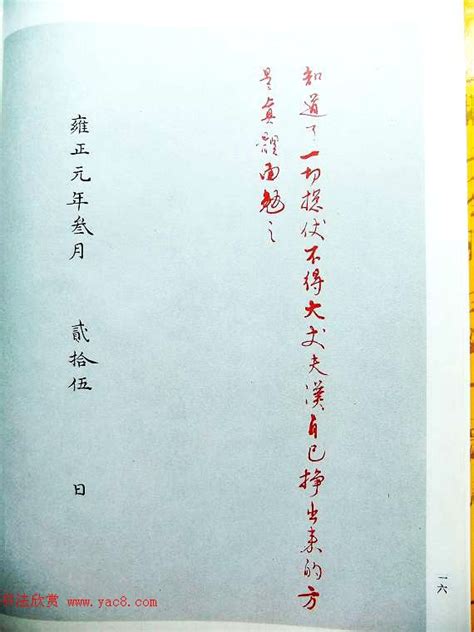 知道了一切總仗不得大丈夫漢自己掙出來的方
是真體面勉之
雍正元年叁月 貳拾伍 日
一六
法欣赏 www.yac8.com